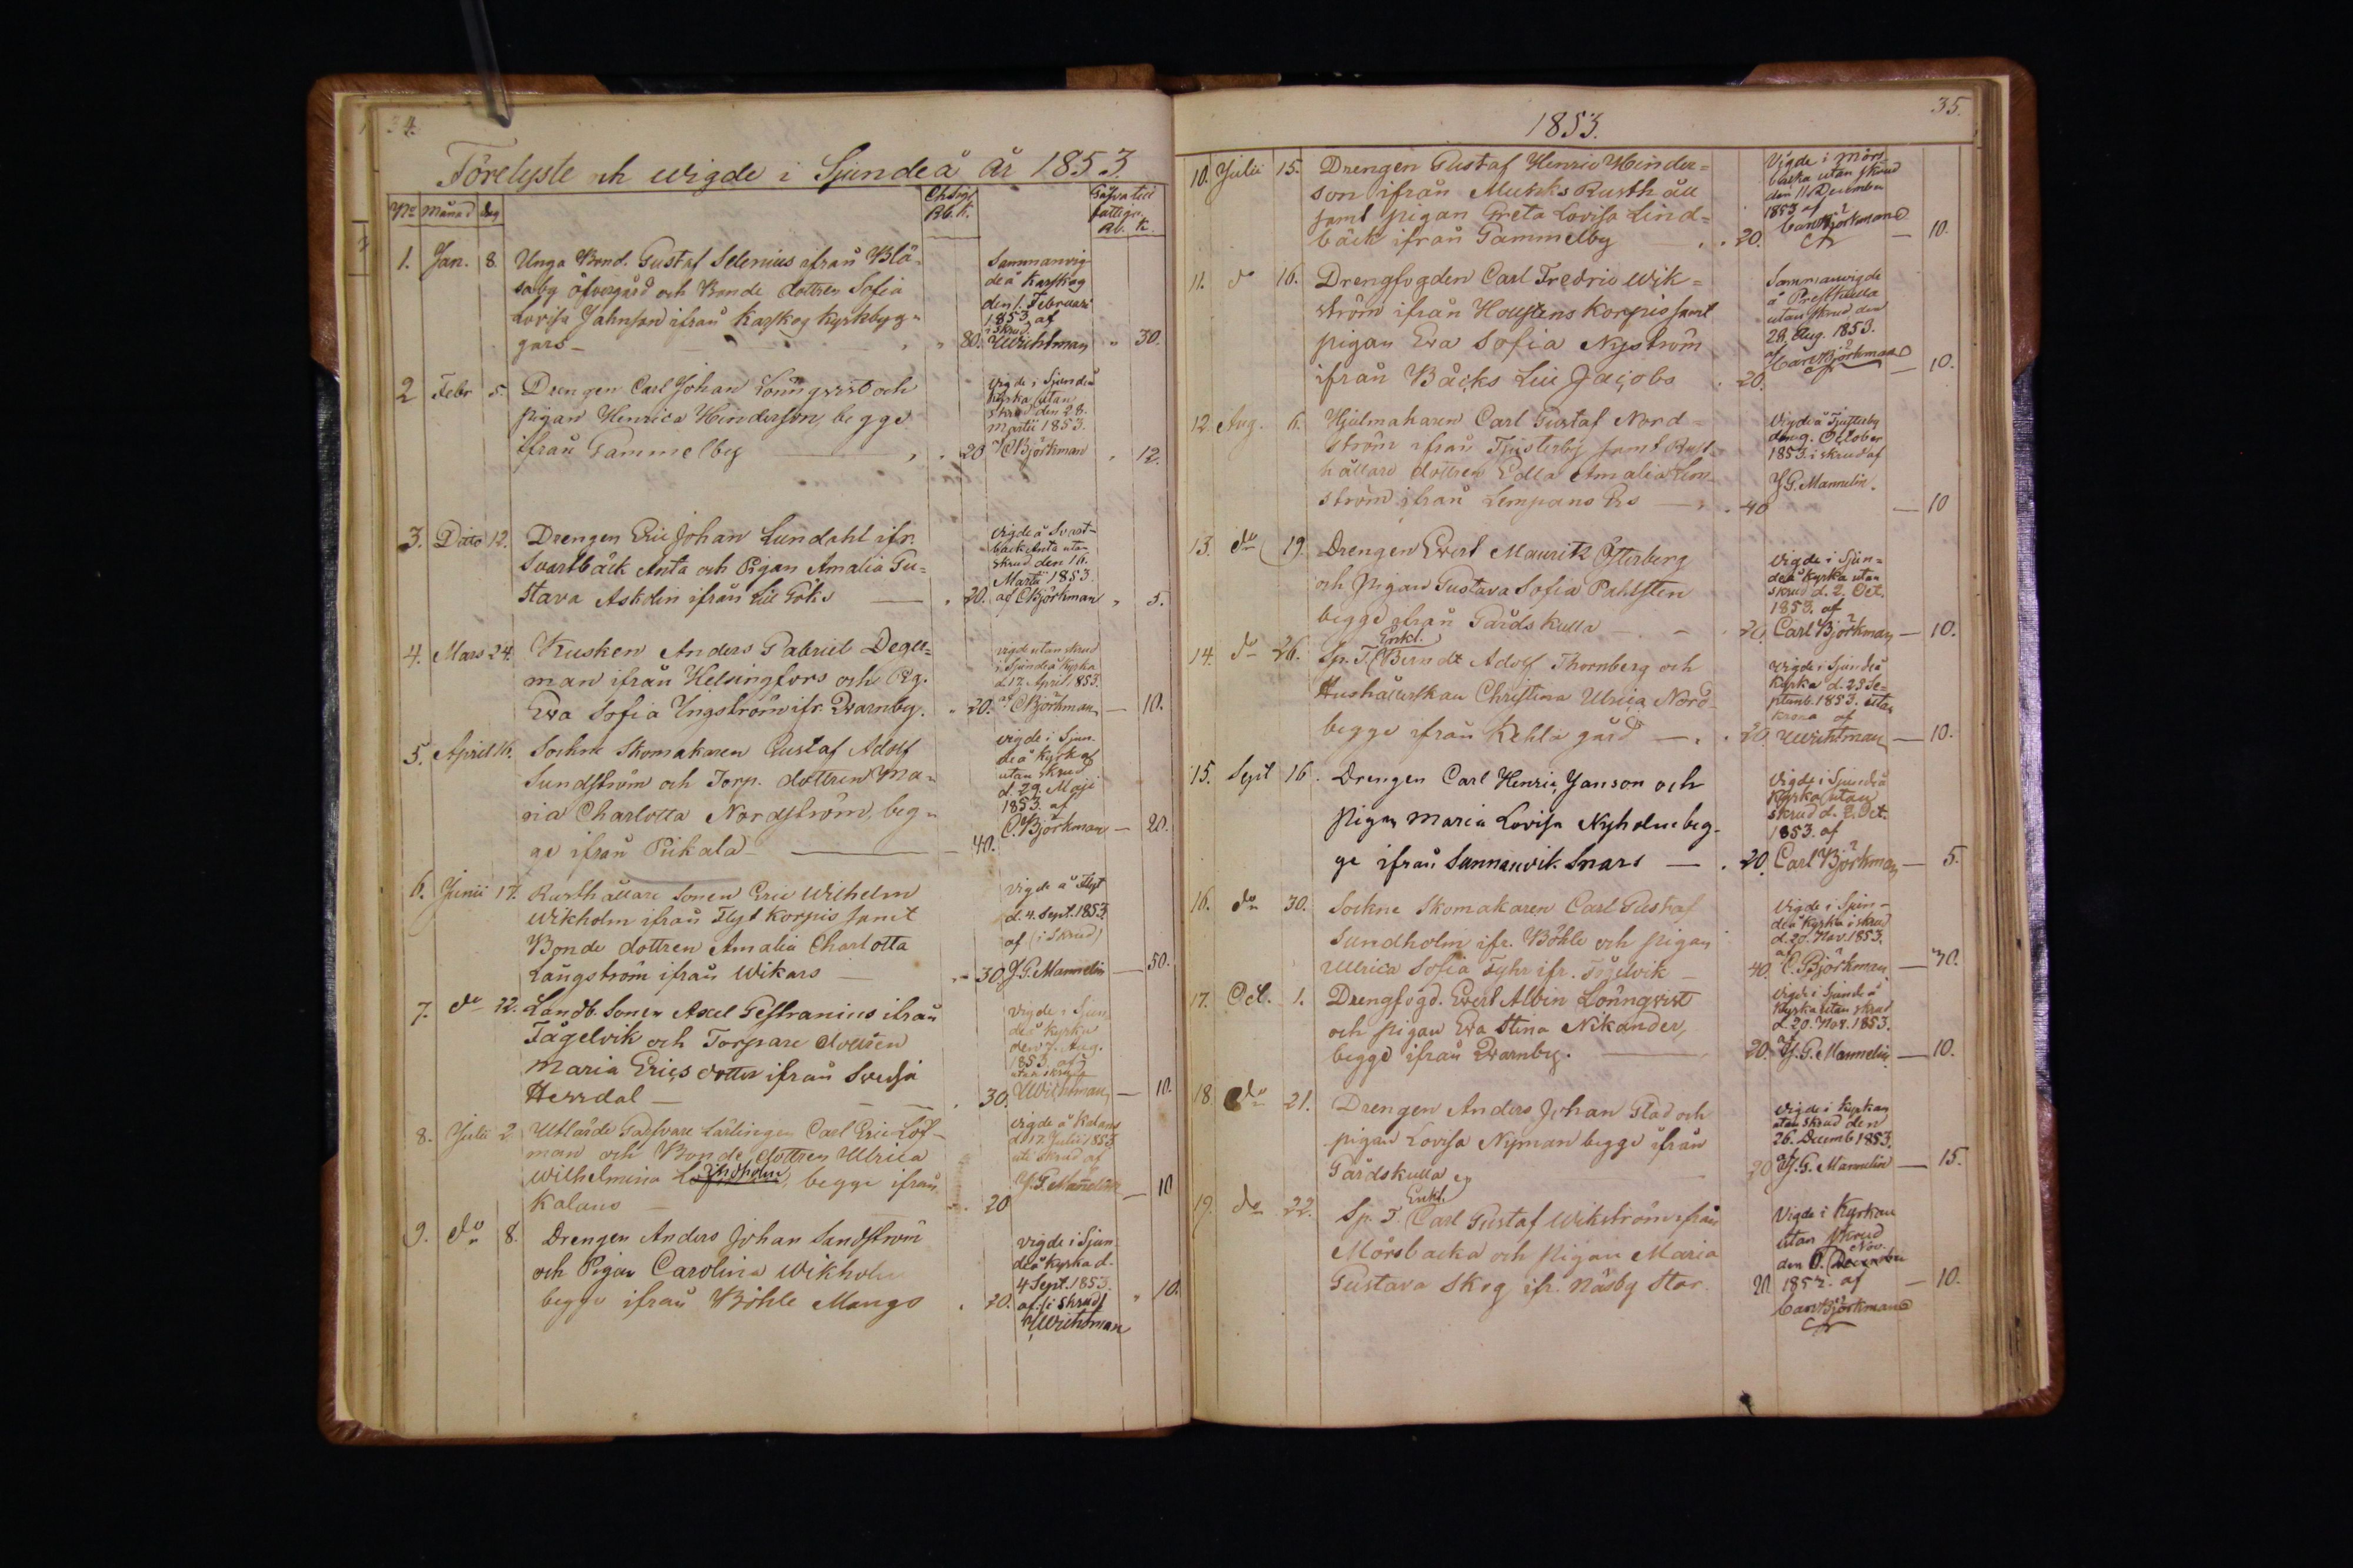 34.
Förelyste och wigde i Sjundeå år 1853
No Månad Dag
Gåfva till fattiga
Rb. K.
Rb. K.
1. Jan. 8. Unga Bond. Gustaf Selenius ifrån Blå-
saby öfvergård och Bonde dottren Sofia
Lovisa Jahnson ifrån Karskog Kyrkbyg-
gars — 80. 30.
Sammanvig-
de å Karskog
den 1. Februari
1853 af
i skrud
Wichtman
2 Febr 5. Drengen Carl Johan Lönnqvist och
pigan Henrica Hinderson, begge
ifrån Gammelby — 20 12.
Vigde i Sjundeå
Kyrka utan
skrud den 28.
Martii 1853.
af CBjörkman
3. Ditto 12. Drengen Eric Johan Lundahl ifr.
Svartbäck Anta och Pigan Amalia Gu-
stava Askolin ifrån Lill Göks — 20. 5.
Vigde å Svart-
bäck Anta utan
skrud den 16.
Martii 1853.
af CBjörkman
4. Mars 24. Kusken Anders Gabriel Deger-
man ifrån Helsingfors och Pig.
Eva Sofia Ingström ifr. Qvarnby. 20. — 10.
vigde utan skrud
i Sjundeå Kyrka
d. 17. April 1853.
af CBjörkman
5. April 16. Sockne Skomakaren Gustaf Adolf
Sundström och Torp. dottren Ma-
ria Charlotta Nordström, beg-
ge ifrån Pikala — 40. — 20.
vigde i Sjun-
deå Kyrka
utan skrud
d. 29. Maji
1853. af
C.Björkman
6. Junii 17. Rusthållare Sonen Eric Wilhelm
Wikholm ifrån Flyt Korpis samt
Bonde dottren Amalia Charlotta
Långström ifrån Wikars — 30. — 50.
Vigde å Flyt
d. 4. Sept. 1853
af (i skrud)
J. G. Mannelin
7. do 22. Landb. Sonen Axel Gestranius ifrån
Fågelvik och Torpare dottren
Maria Erics dotter ifrån Svidja
Herrdal — 30. — 10.
Vigde i Sjun-
deå Kyrka
den 7. Aug.
1853. af
utan skrud
Wichtman
8. Julii 2. Utlärde Garfvare Lärlingen Carl Eric Löf-
man och Bonde dottren Ulrica
Wilhelmina Lindholm, begge ifrån
Kalans — 20 — 10
Vigde å Kalans
d. 17. Julii 1853
uti skrud af
J. G. Mannelin
9. do 8. Drengen Anders Johan Sandström
och Pigan Carolina Wikholm
begge ifrån Böhle Mangs 20. 10.
vigde i Sjun-
deå Kyrka d.
4 Sept. 1853.
af (i skrud)
Wichtman
1853.
35.
10. Julii 15. Drengen Gustaf Henric Hinder-
son ifrån Munks Rusthåll
samt pigan Greta Lovisa Lind-
bäck ifrån Gammelby 20. — 10.
Vigde i Mörs-
backa utan skrud
den 11 December
1853 af
Carl Björkman
11. do 16. Drengfogden Carl Fredric Wik-
ström ifrån Holstens Korpis samt
pigan Eva Sofia Nyström
ifrån Bäcks Lill Jacobs 20. — 10.
Sammanvigde
å Prestkulla
utan skrud den
28. Aug. 1853.
af Carl Björkman
12. Aug. 6. Hjulmakaren Carl Gustaf Nord-
ström ifrån Tjusterby samt Rust-
hållare dottren Edla Amalia Lim-
ström ifrån Lempans Ers — 40 — 10
Vigde å Tjusterby
den 9. October
1853. i skrud af
J G. Mannelin.
13. do 19. Drengen Evert Mauritz Österberg
och pigan Gustava Sofia Pahlsten
begge ifrån Gårdskulla — 20. — 10.
Vigde i Sjun-
deå Kyrka utan
skrud d. 2. Oct.
1853. af
Carl Björkman
14. do 26. Sp. T. Enkl. Berndt Adolf Thornberg och
Hushållerskan Christina Ulrica Nord
begge ifrån Kehla gård — 20 — 10.
Vigde i Sjundeå
Kyrka d. 25 Se-
ptemb. 1853. utan
krona af
Wichtman
15. Sept 16. Drengen Carl Henric Janson och
Pigan Maria Lovisa Nyholm beg-
ge ifrån Sunnanvik Snars — 20. — 5.
Vigde i Sjundeå
Kyrka utan
skrud d. 2. Oct.
1853. af
Carl Björkman
16. do 30. Sockne Skomakaren Carl Gustaf
Sundholm ifr. Böhle och pigan
Ulrica Sofia Fyhr ifr. Fågelvik — 40.
Vigde i Sjun-
deå Kyrka i skrud
d. 20. Nov. 1853.
af C. Björkman
17. Oct. 1. Drengfogd. Evert Albin Lönnqvist
och pigan Eva Stina Nikander,
begge ifrån Qvarnby. — 20. — 10.
Vigde i Sjundeå
Kyrka utan skrud
d. 20. Nov. 1853.
af J. G. Mannelin
18. do 21. Drengen Anders Johan Glad och
pigan Lovisa Nyman begge ifrån
Gårdskulla 20 — 15.
Vigde i Kyrkan
utan skrud den
26. Decemb 1853.
af J. G. Mannelin
19. do 22. Sp. T. Enkl. Carl Gustaf Wikström ifrån
Mörsbacka och pigan Maria
Gustava Skog ifr. Näsby Stor 20 — 10.
Vigde i Kyrkan
utan skrud
Nov.
den December
1853. af
Carl Björkman